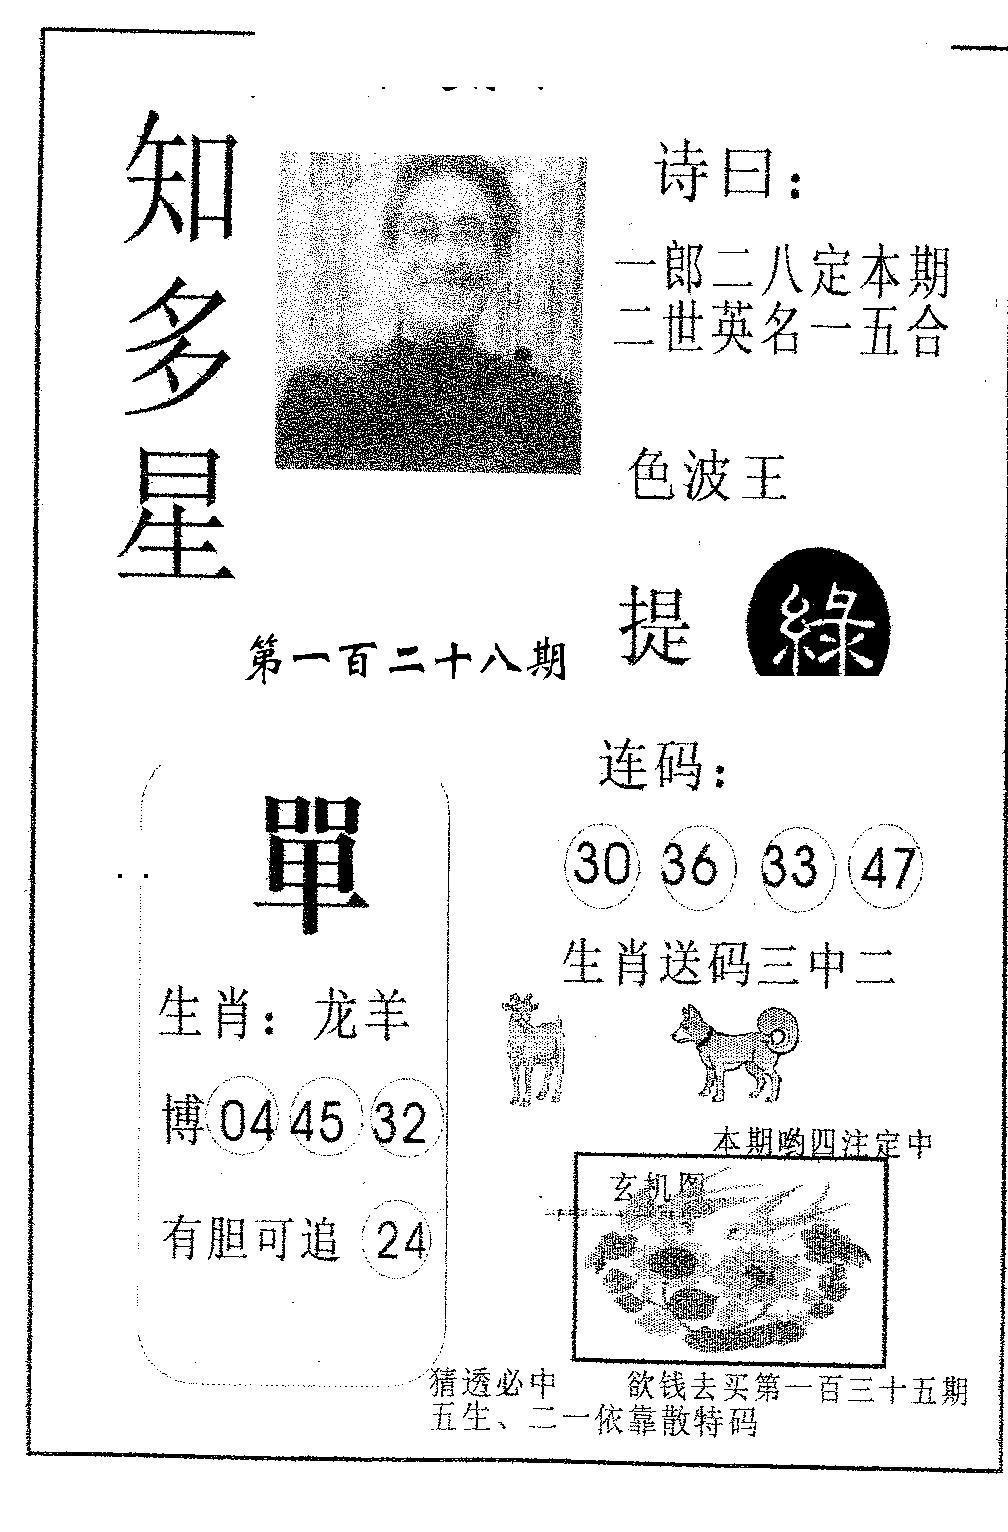 知多星
诗曰：
一郎二八定本期
二世英名一五合
色波王
提 綠
第一百二十八期
單
生肖：龙羊
博 04 45 32
有胆可追 24
连码：
30 36 33 47
生肖送码三中二
本期哟四注定中
玄机图
猜透必中 欲钱去买第一百三十五期
五生、二一依靠散特码